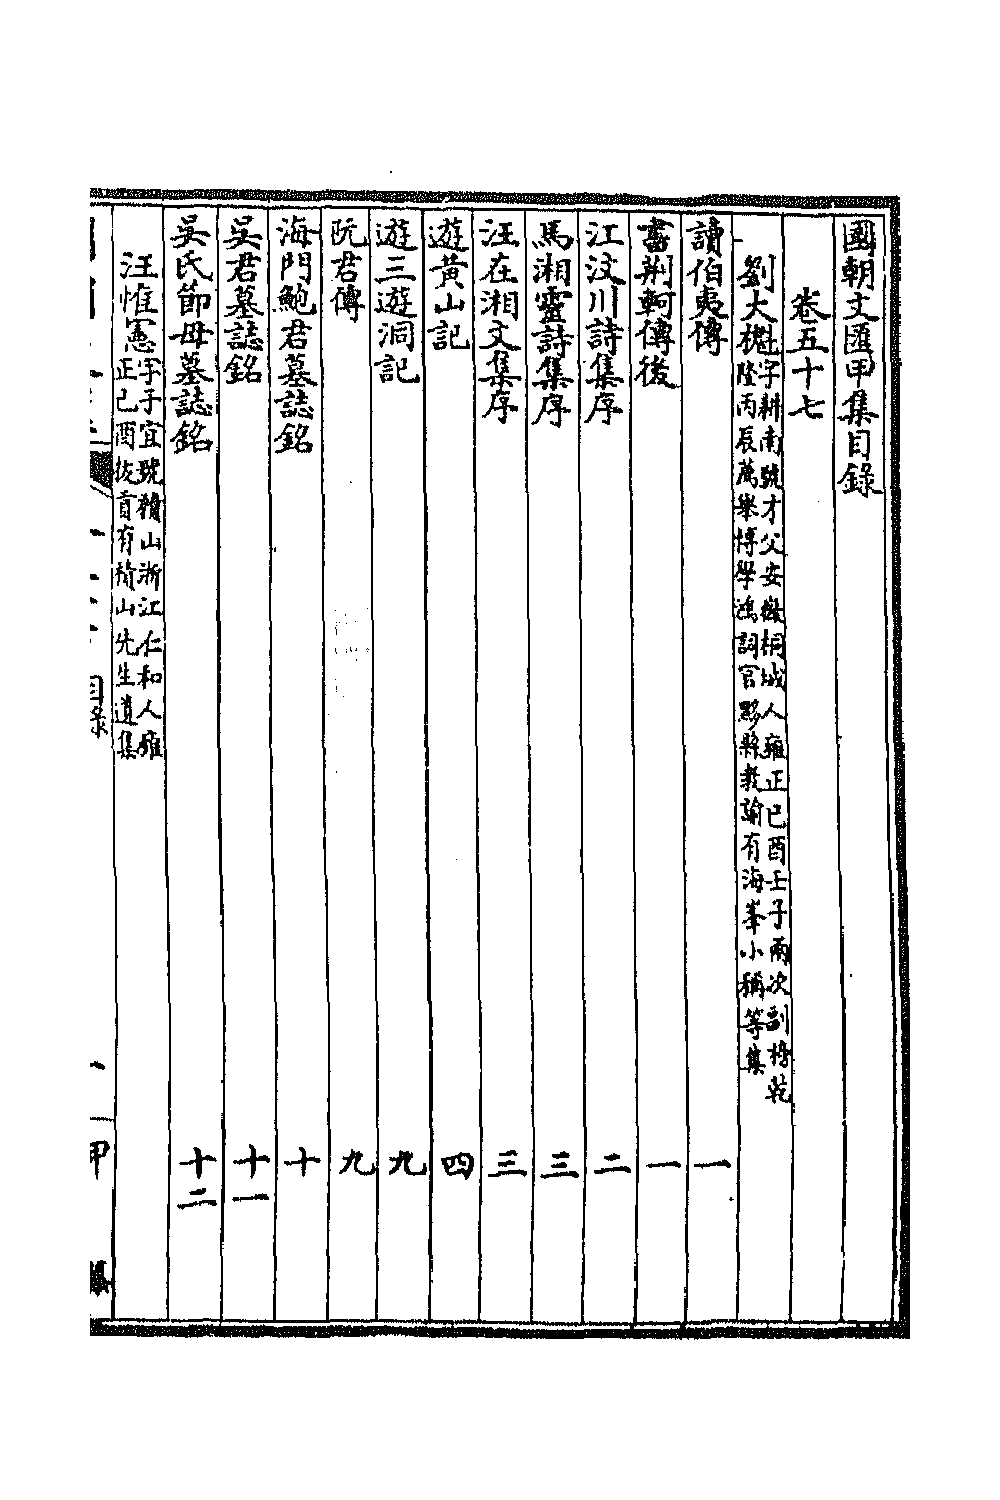 國朝文匯甲集目錄
卷五十七
劉大櫆字耕南號才父安徽桐城人雍正己酉壬子兩次副榜乾隆丙辰薦舉博學鴻詞官黟縣教諭有海峯小稱等集
讀伯夷傳 一
書荆軻傳後 一
江汶川詩集序 二
馬湘靈詩集序 三
汪在湘文集序 三
遊黃山記 四
遊三遊洞記 九
阮君傳 九
海門鮑君墓誌銘 十
吳君墓誌銘 十一
吳氏節母墓誌銘 十二
汪惟憲字子宜號積山浙江仁和人雍正己酉拔貢有積山先生遺集
目錄 一 甲